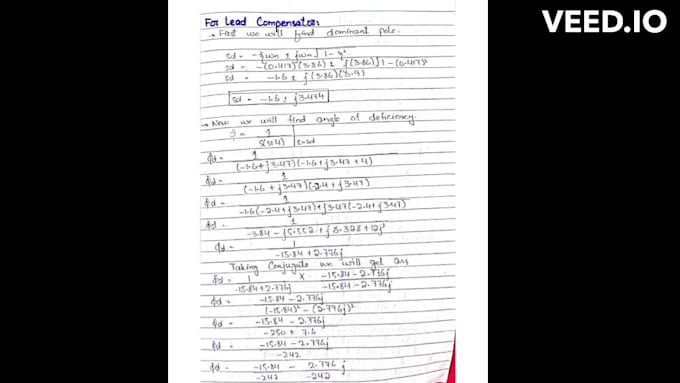 For Lead Compensator:
→ First we will find dominant pole.
sd = -ξωn ± jωn√1-ξ²
sd = -(0.417)(3.86) ± j(3.86)√1-(0.417)²
sd = -1.6 ± j(3.86)(0.9)
sd = -1.6 ± j3.474
→ Now we will find angle of deficiency.
1
S(S+4) | s=sd
ϕd = 1
(-1.6+j3.47)(-1.6+j3.47+4)
ϕd = 1
(-1.6+j3.47)(-2.4+j3.47)
ϕd = 1
-1.6(-2.4+j3.47)+j3.47(-2.4+j3.47)
ϕd = 1
-3.84-j5.552+j8.328+12j²
ϕd = 1
-15.84+2.776j
Taking Conjugate we will get as:
ϕd = 1 × -15.84-2.776j
-15.84+2.776j -15.84-2.776j
ϕd = -15.84-2.776j
(-15.84)²-(2.776j)²
ϕd = -15.84-2.776j
-250+7.6
ϕd = -15.84-2.776j
-242
ϕd = -15.84 - 2.776 j
-242 -242
VEED.IO